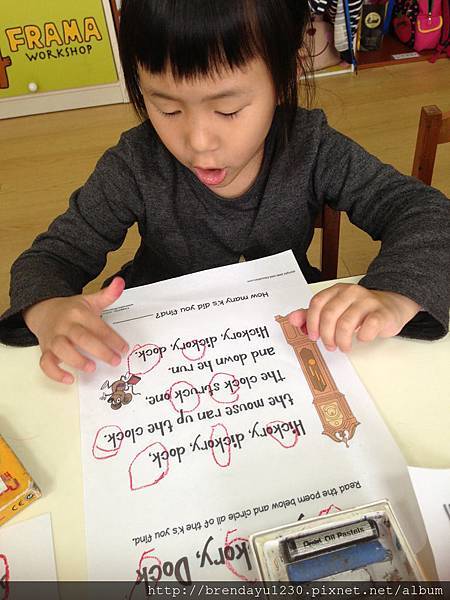 FRAMA
WORKSHOP
kory, Dock
Read the poem below and circle all of the k's you find.
Hickory, dickory, dock,
the mouse ran up the clock.
The clock struck one,
and down he run.
Hickory, dickory, dock.
How many k's did you find?
Pentel Oil Pastels
http://brendayu1230.pixnet.net/album